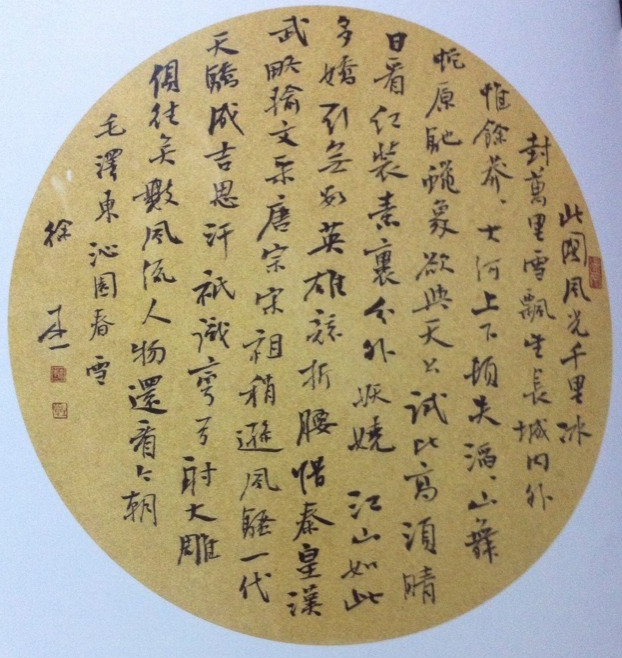 北國風光千里冰
封萬里雪飄望長城内外
惟餘莽、大河上下頓失滔、山舞
蛇原馳蠟象欲與天公試比高須晴
日看紅裝素裹分外妖嬈江山如此
多嬌引無數英雄競折腰惜秦皇漢
武略輸文采唐宗宋祖稍遜風騷一代
天驕成吉思汗祇識彎弓射大雕
俱往矣數風流人物還看今朝
毛澤東沁園春雪
徐